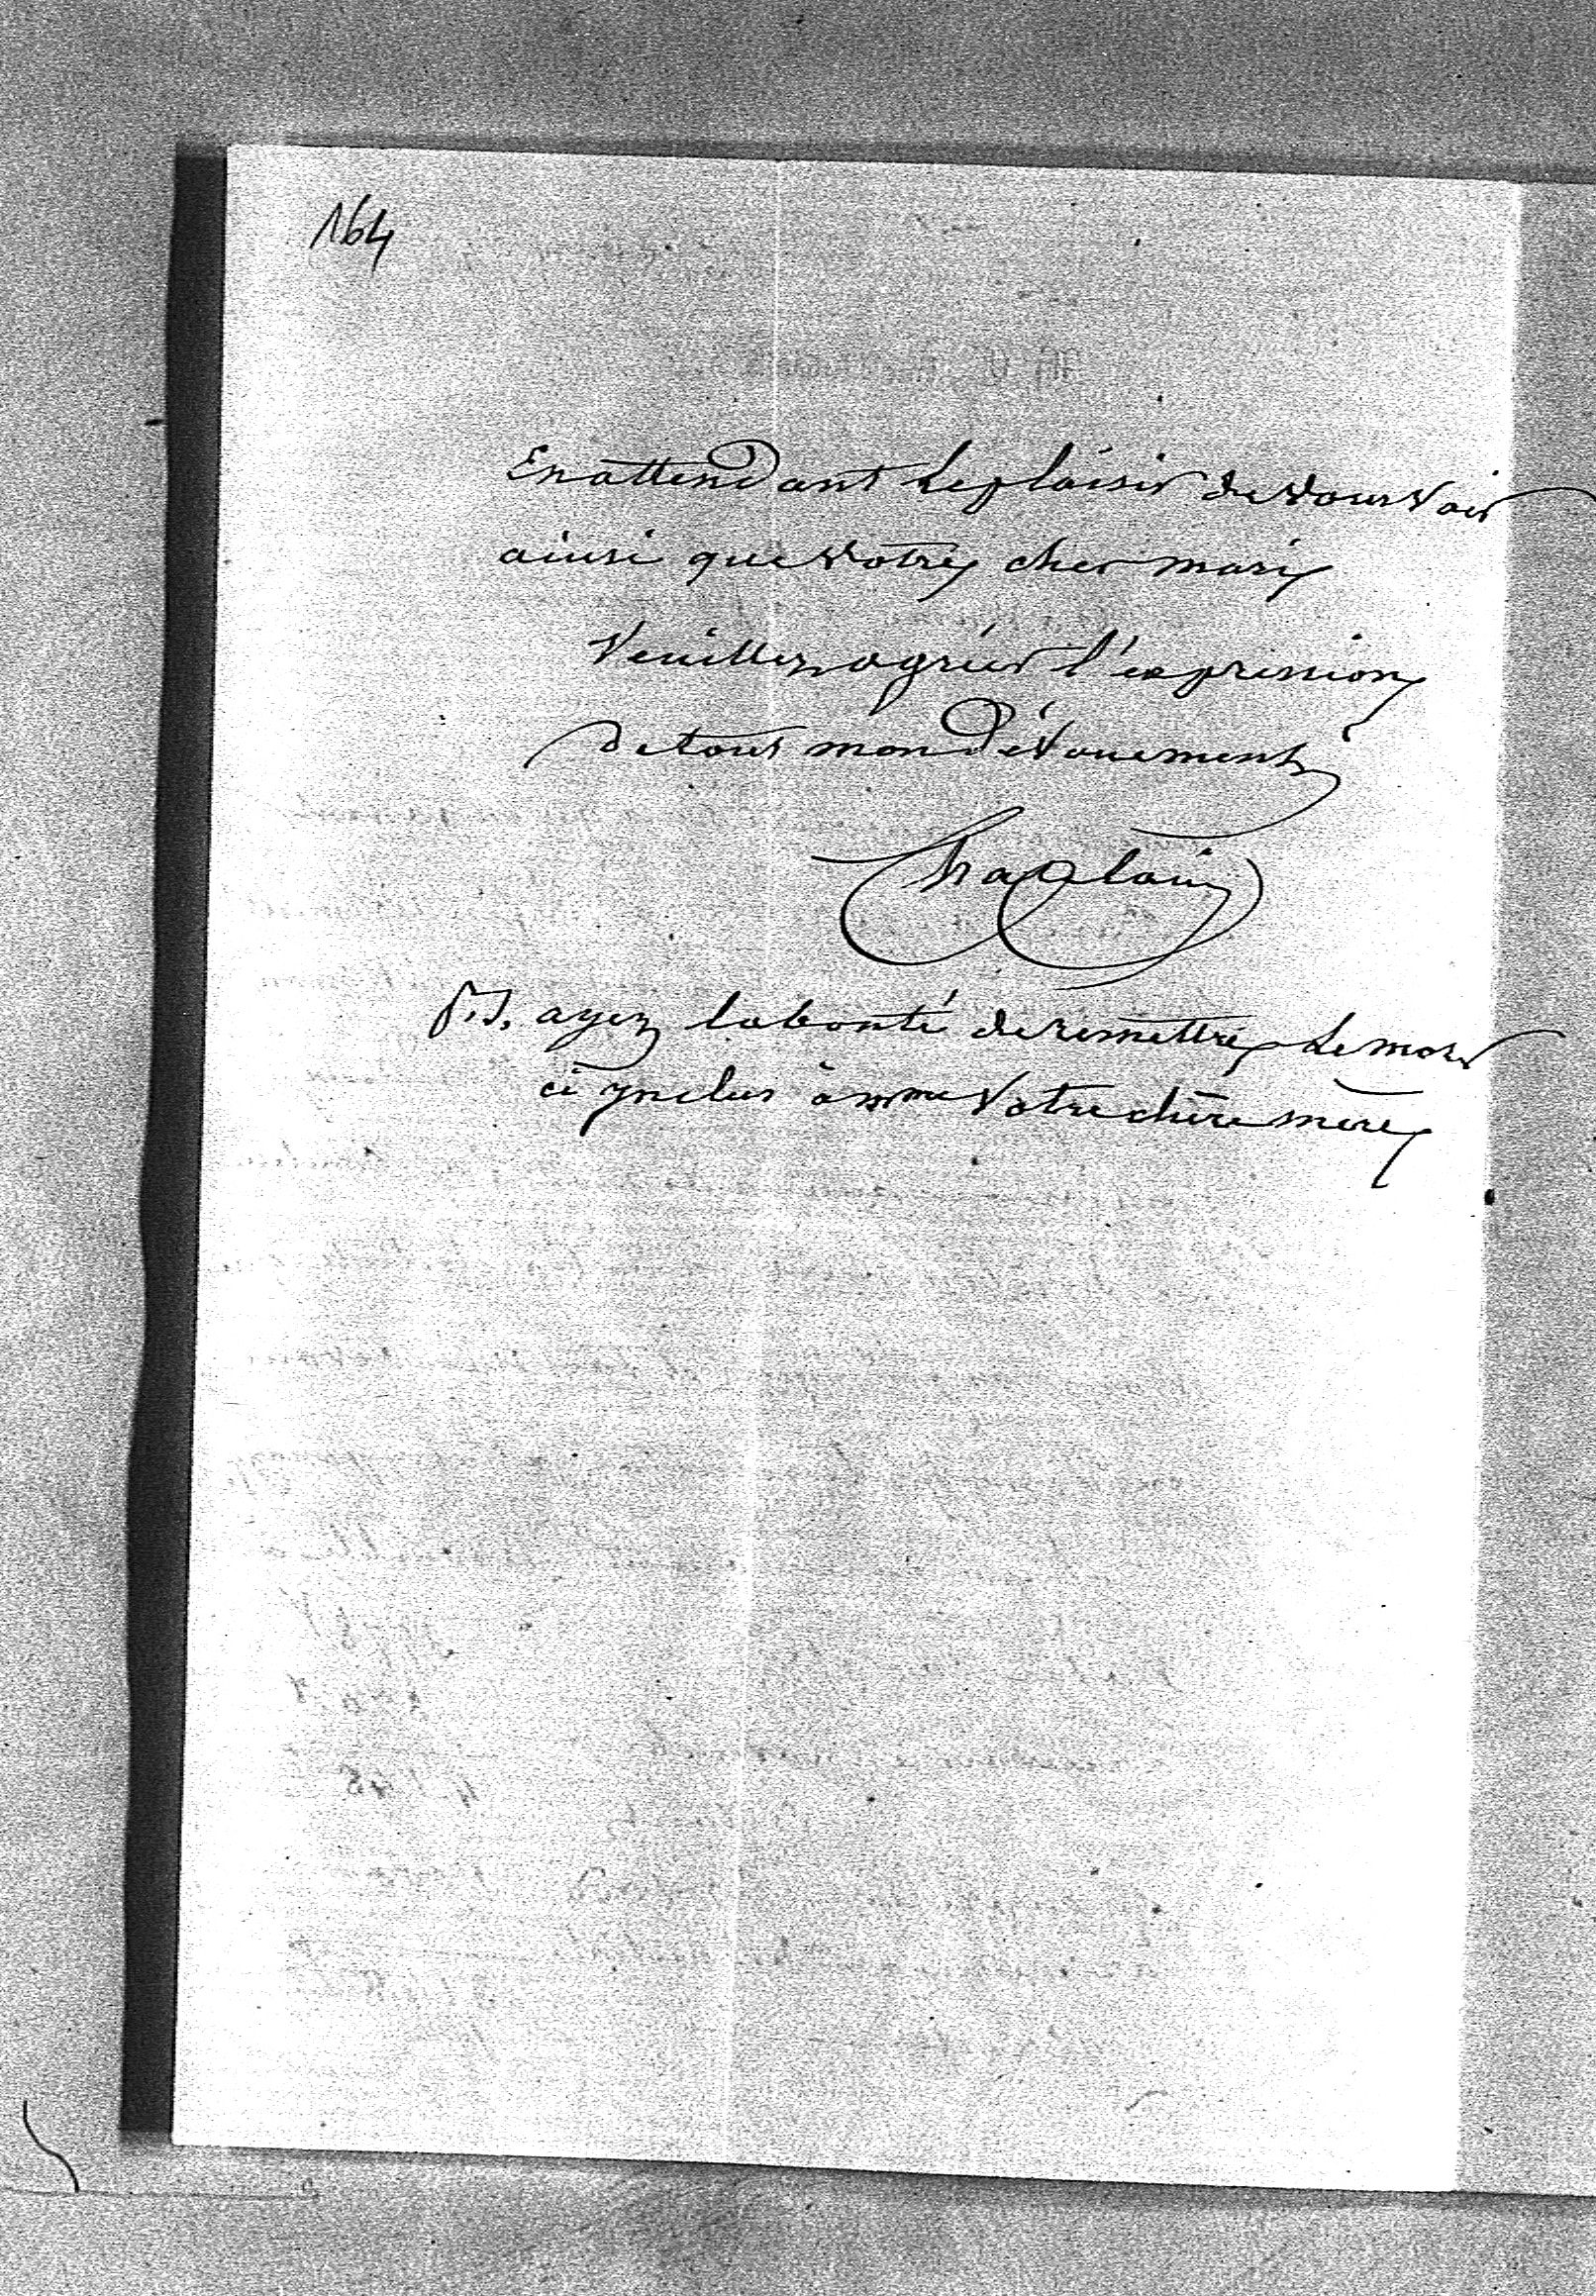 164
En attendant Le plaisir de vous voir
ainsi que votre cher mari
Veuillez agréer l'expression
de tout mon dévouement
Chaplain
P.S. ayez la bonté de remettre Le mot
ci ynclus à mme votre chère mère